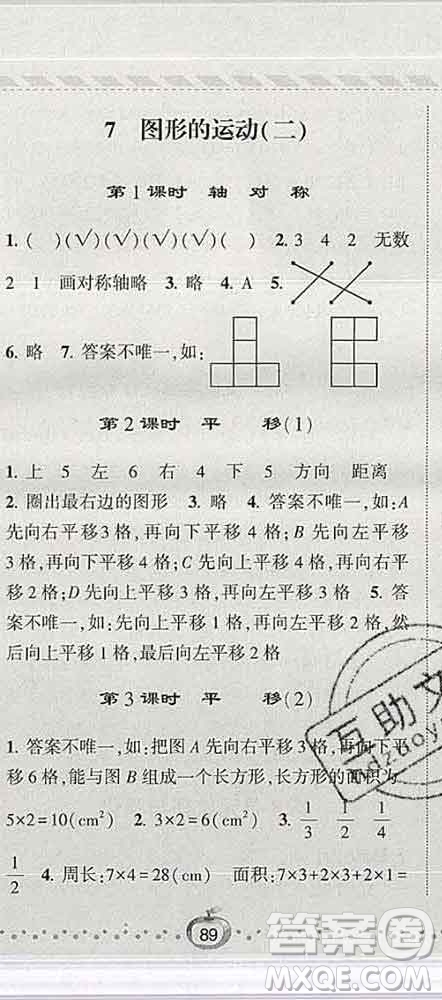 7 图形的运动(二)
第1课时 轴 对 称
1. ( )(√)(√)(√)(√)( ) 2. 3 4 2 无数
2 1 画对称轴略 3. 略 4. A 5.
6. 略 7. 答案不唯一,如:
第2课时 平 移(1)
1. 上 5 左 6 右 4 下 5 方向 距离
2. 圈出最右边的图形 3. 略 4. 答案不唯一,如:A
先向右平移3格,再向下平移4格;B先向右平移3
格,再向下平移4格;C先向上平移4格,再向右平
移2格;D先向上平移3格,再向左平移3格 5. 答
案不唯一,如:先向上平移2格,再向左平移2格,然
后向上平移1格,最后向左平移2格
第3课时 平 移(2)
1. 答案不唯一,如:把图A先向右平移3格,再向下平
移6格,能与图B组成一个长方形,长方形的面积为
5×2=10(cm²) 2. 3×2=6(cm²) 3. 1/3 1/2 1/4
1/2 4. 周长:7×4=28(cm) 面积:7×3+3×2+2×1=
89
互助文
答案圈
MXQE.COM